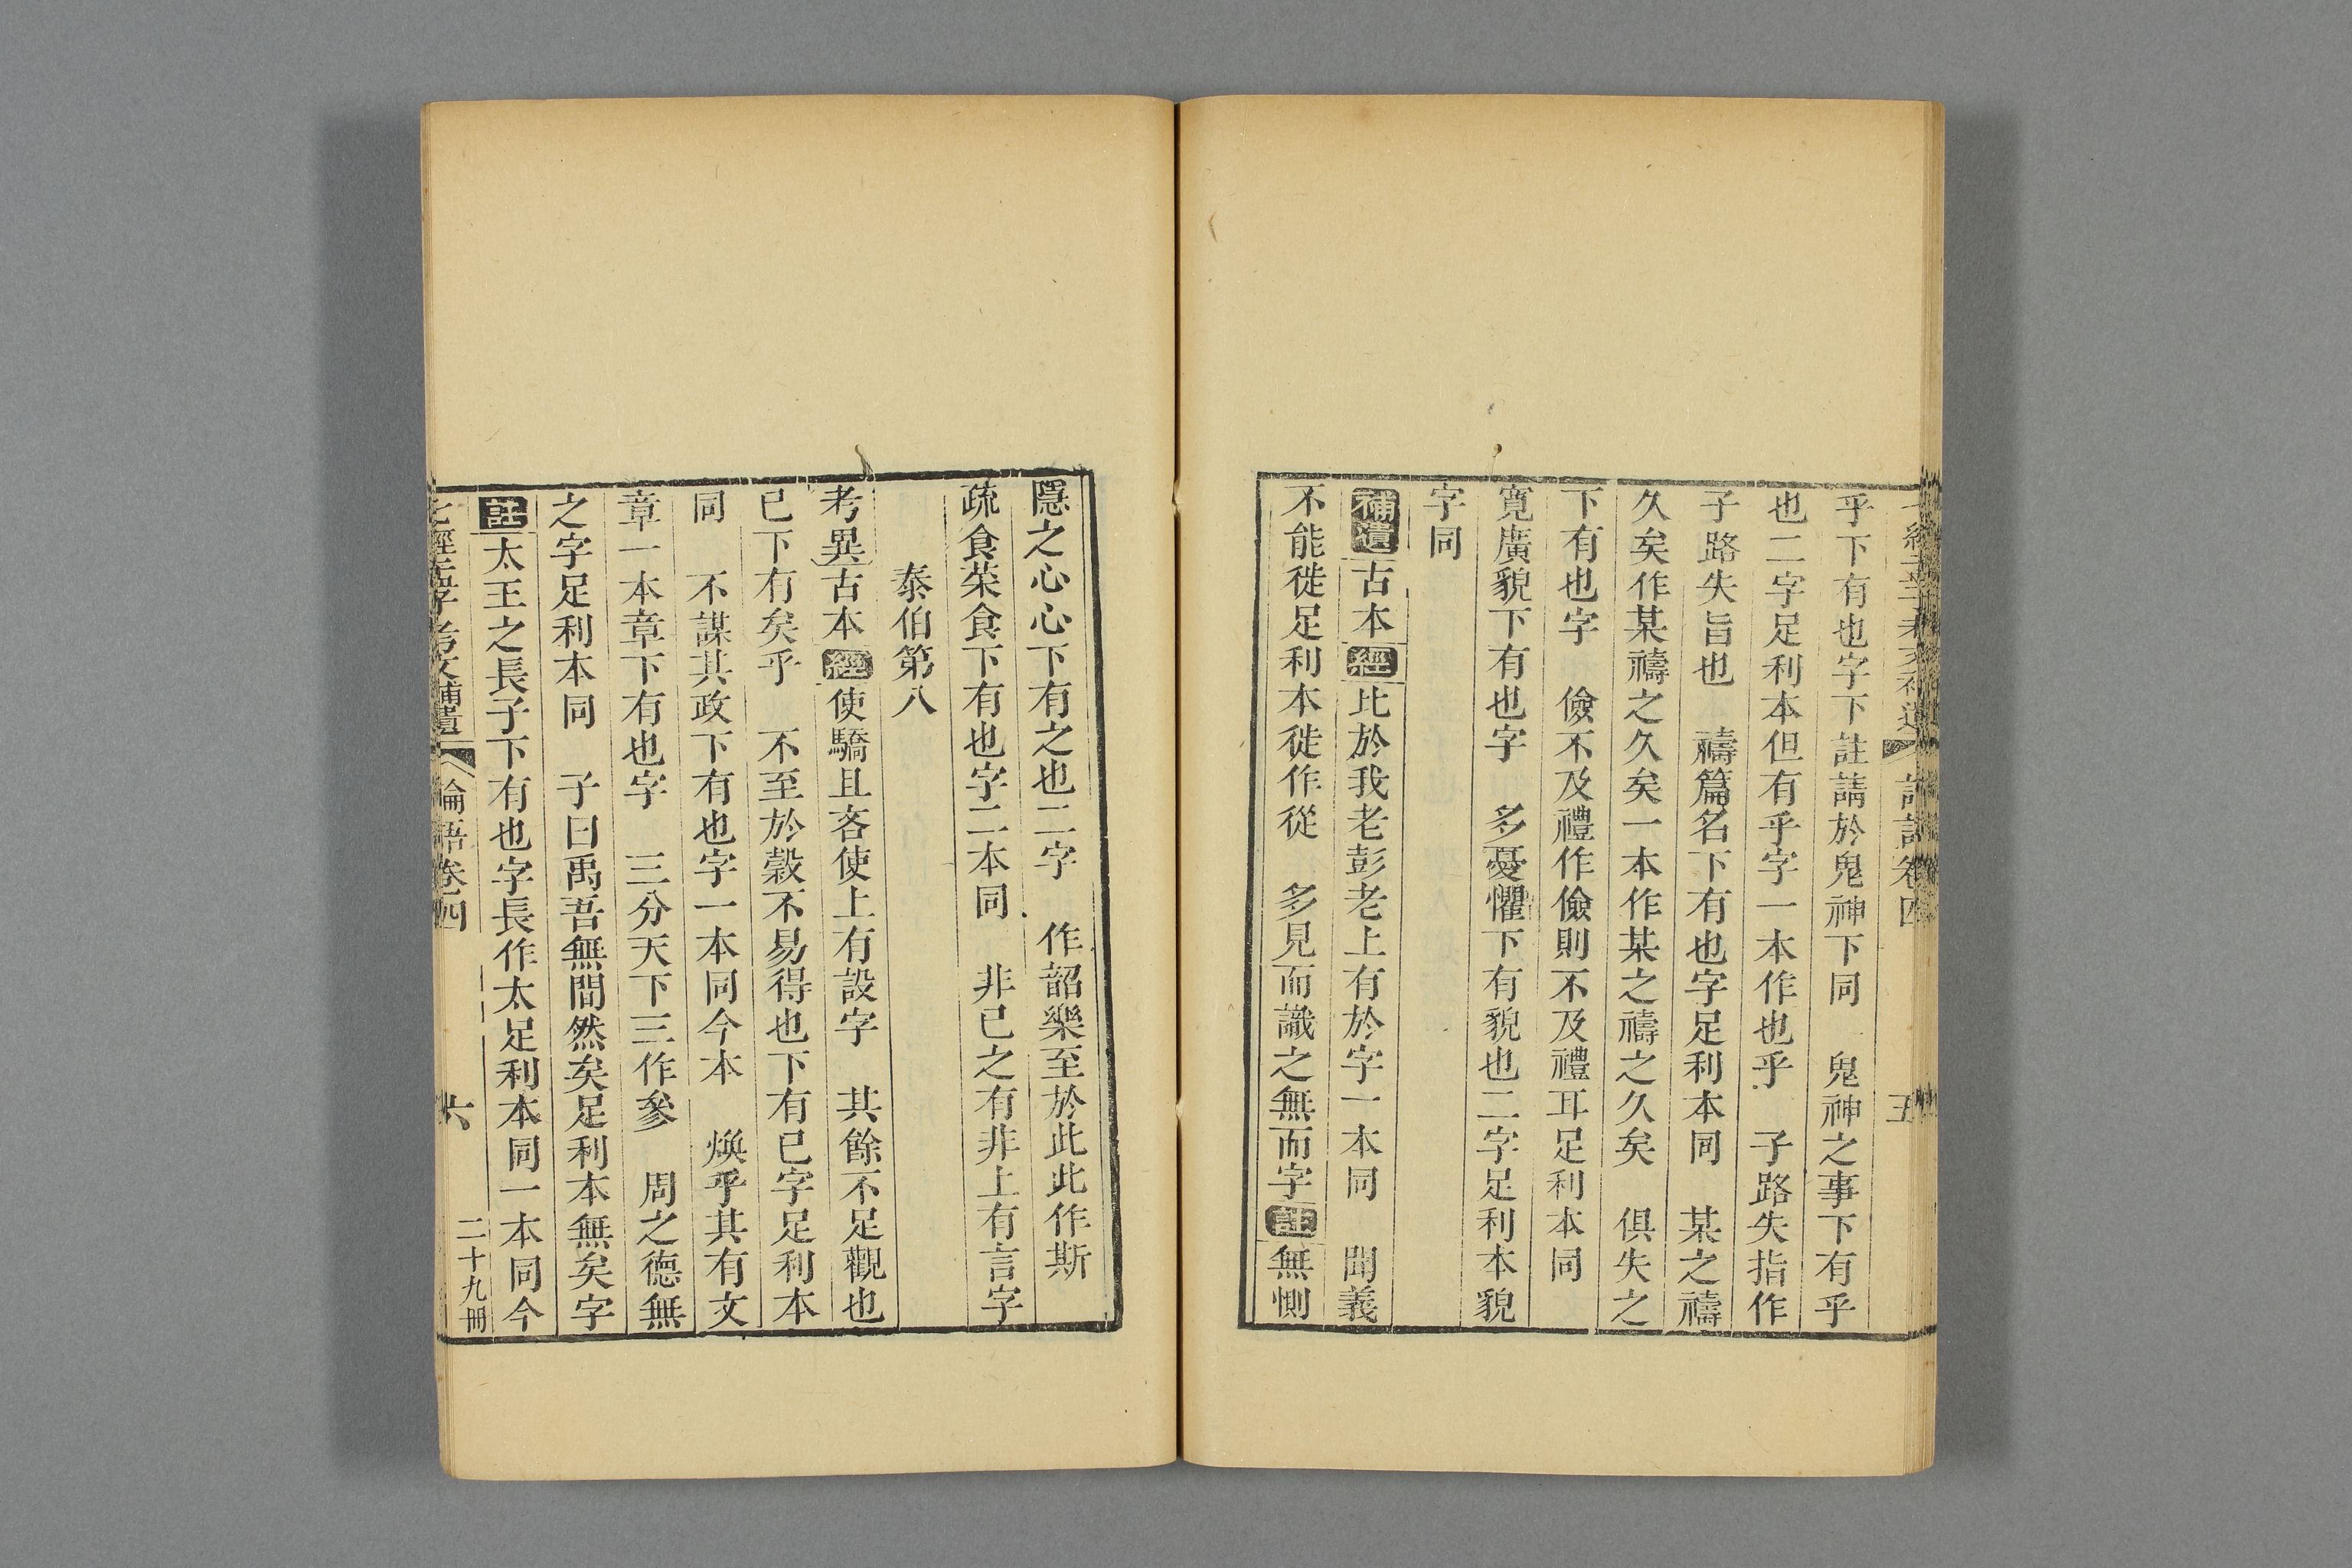 乎下有也字下註請於鬼神下同　鬼神之事下有乎
也二字足利本但有乎字一本作也乎　子路失指作
子路失旨也　禱篇名下有也字足利本同　某之禱
久矣作某禱之久矣一本作某之禱之久矣　俱失之
下有也字　儉不及禮作儉則不及禮耳足利本同
寬廣貌下有也字　多憂懼下有貌也二字足利本貌
字同
補遺古本經比於我老彭老上有於字一本同　聞義
不能徙足利本徙作從　多見而識之無而字註無惻
隱之心心下有之也二字　作韶樂至於此此作斯
疏食菜食下有也字二本同　非己之有非上有言字
泰伯第八
考異古本經使驕且吝使上有設字　其餘不足觀也
已下有矣乎　不至於穀不易得也下有已字足利本
同　不謀其政下有也字一本同今本　煥乎其有文
章一本章下有也字　三分天下三作參　周之德無
之字足利本同　子曰禹吾無間然矣足利本無矣字
註太王之長子下有也字長作太足利本同一本同今
七經孟子考文補遺　論語卷四　六　二十九冊